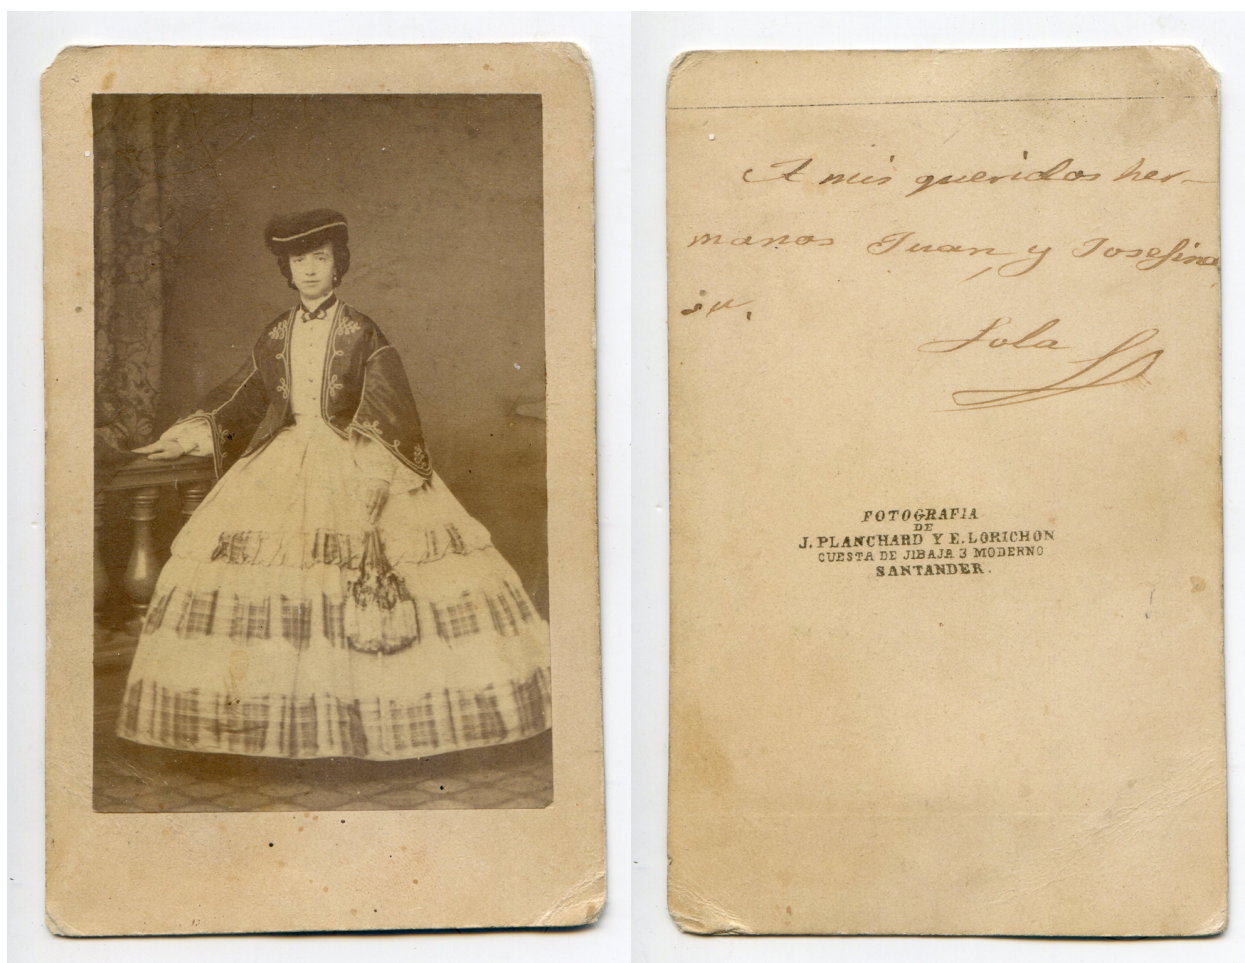 A mis queridos her-
manos Juan y Josefina
su,
Lola
FOTOGRAFIA
DE
J. PLANCHARD Y E. LORICHON
CUESTA DE JIBAJA 3 MODERNO
SANTANDER.